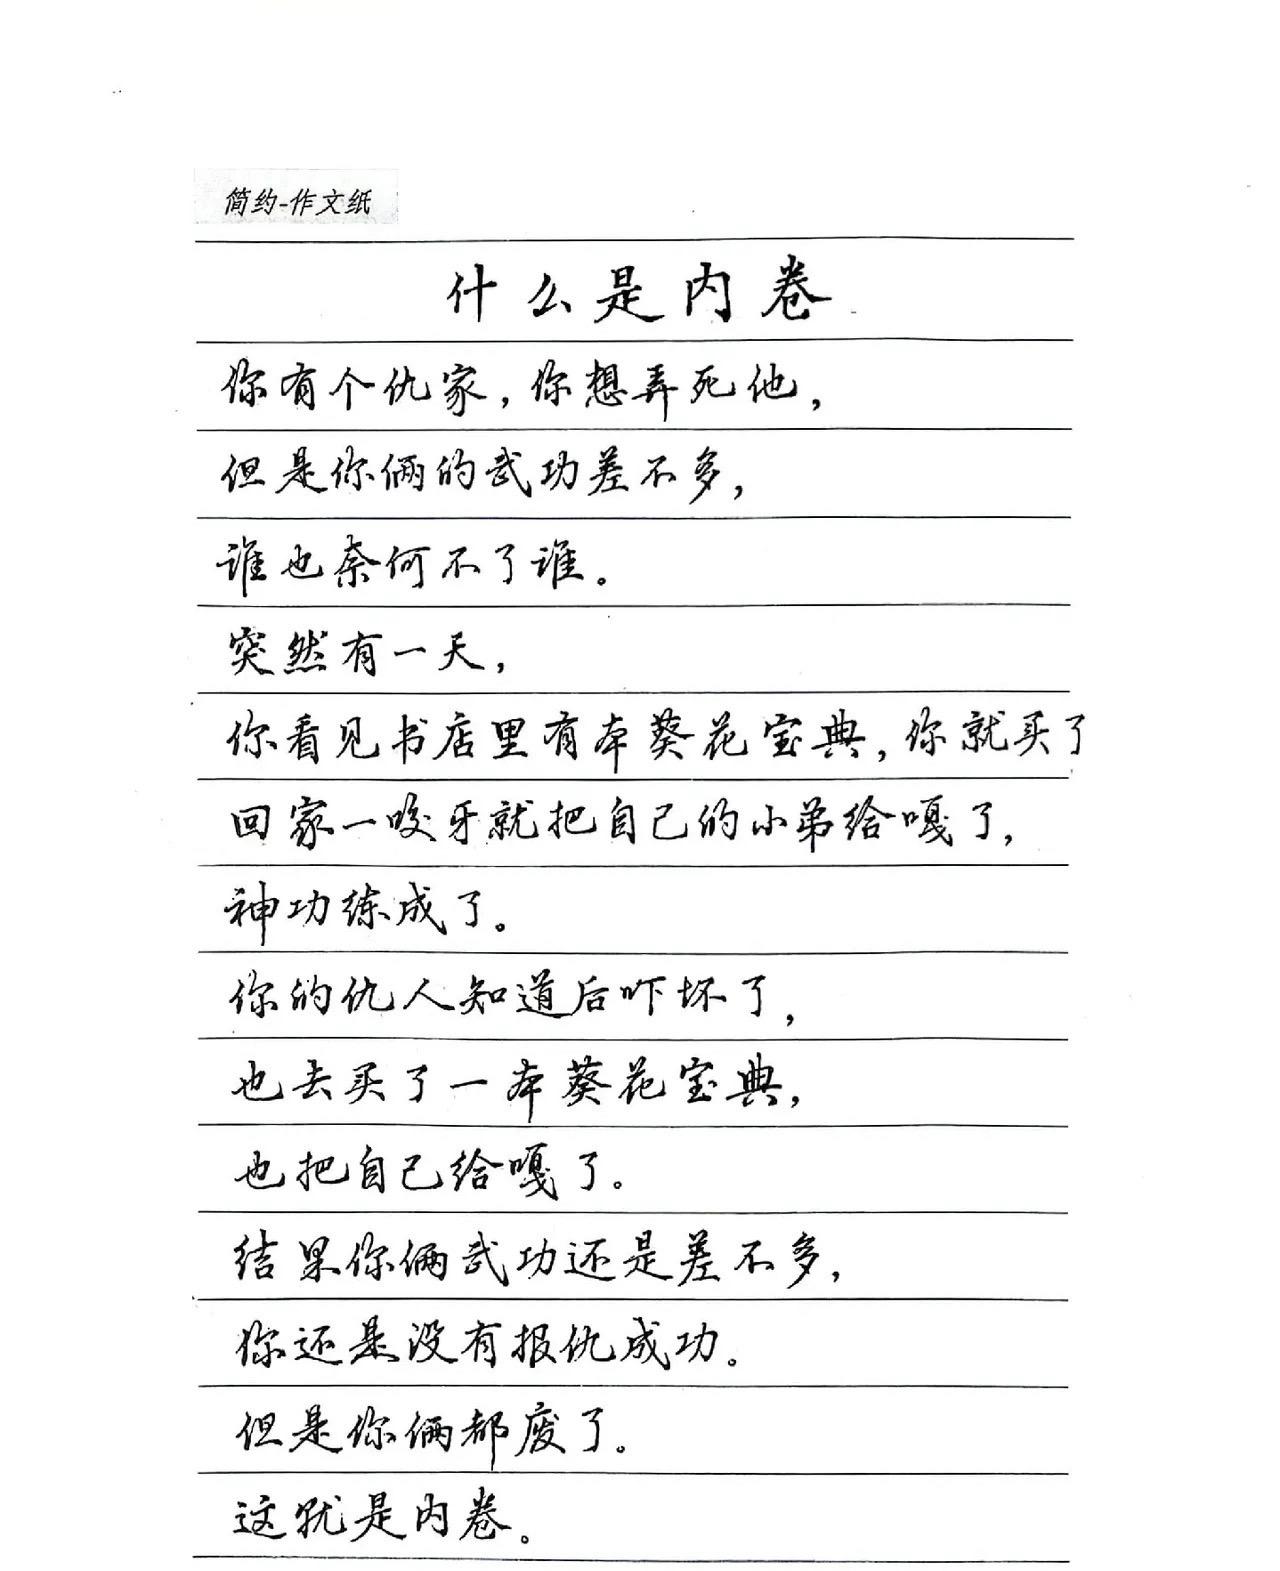 简约-作文纸
什么是内卷
你有个仇家，你想弄死他，
但是你俩的武功差不多，
谁也奈何不了谁。
突然有一天，
你看见书店里有本葵花宝典，你就买了
回家一咬牙就把自己的小弟给嘎了，
神功练成了。
你的仇人知道后吓坏了，
也去买了一本葵花宝典，
也把自己给嘎了。
结果你俩武功还是差不多，
你还是没有报仇成功。
但是你俩都废了。
这就是内卷。